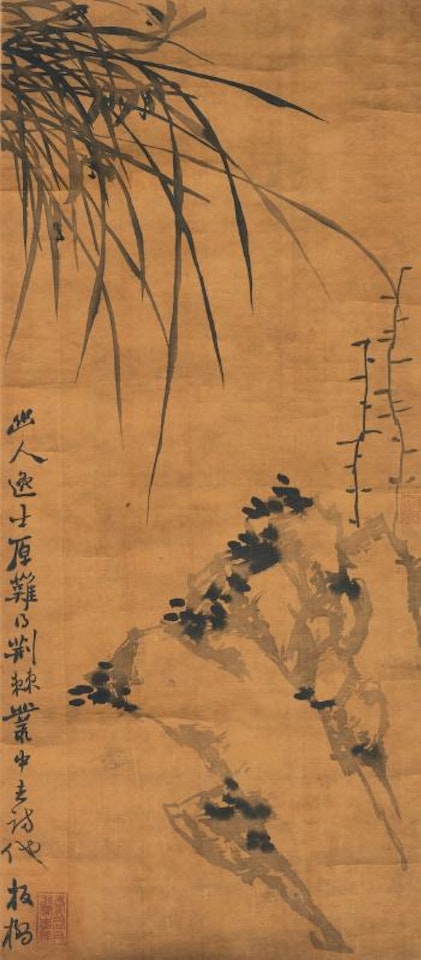 幽人逸士原難得荆棘叢中去訪他 板橋